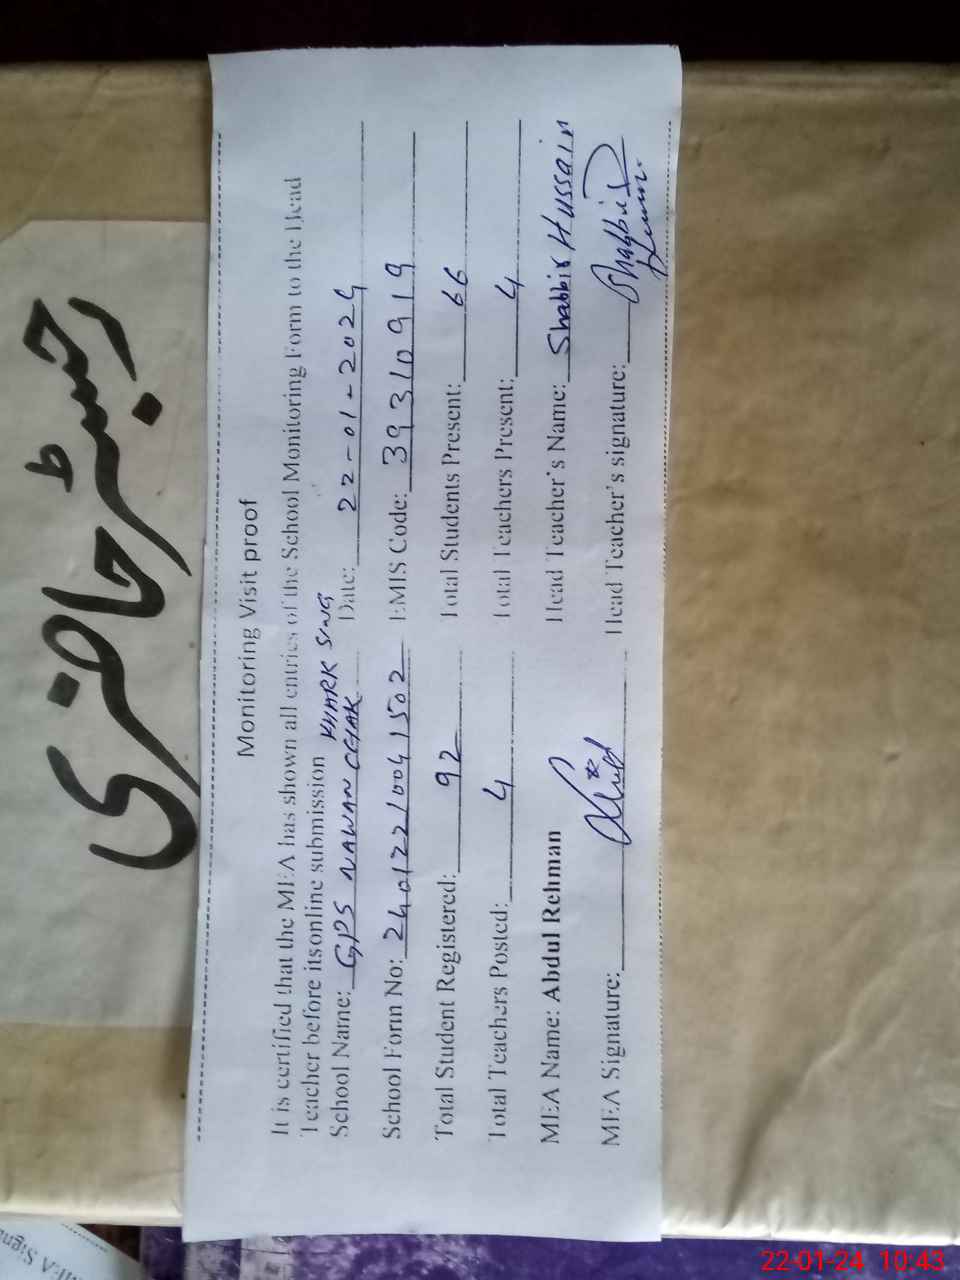 رجسٹر حاضری
Monitoring Visit proof
It is certified that the MEA has shown all entries of the School Monitoring Form to the Head
Teacher before itsonline submission
School Name: GPS NAWAN CHAK KHARK SING Date: 22-01-2024
School Form No: 24012210041502 EMIS Code: 39310919
Total Student Registered: 92 Total Students Present: 66
Total Teachers Posted: 4 Total Teachers Present: 4
MEA Name: Abdul Rehman Head Teacher's Name: Shabbir Hussain
MEA Signature: Head Teacher's signature:
MEA Signa
22-01-24 10:43